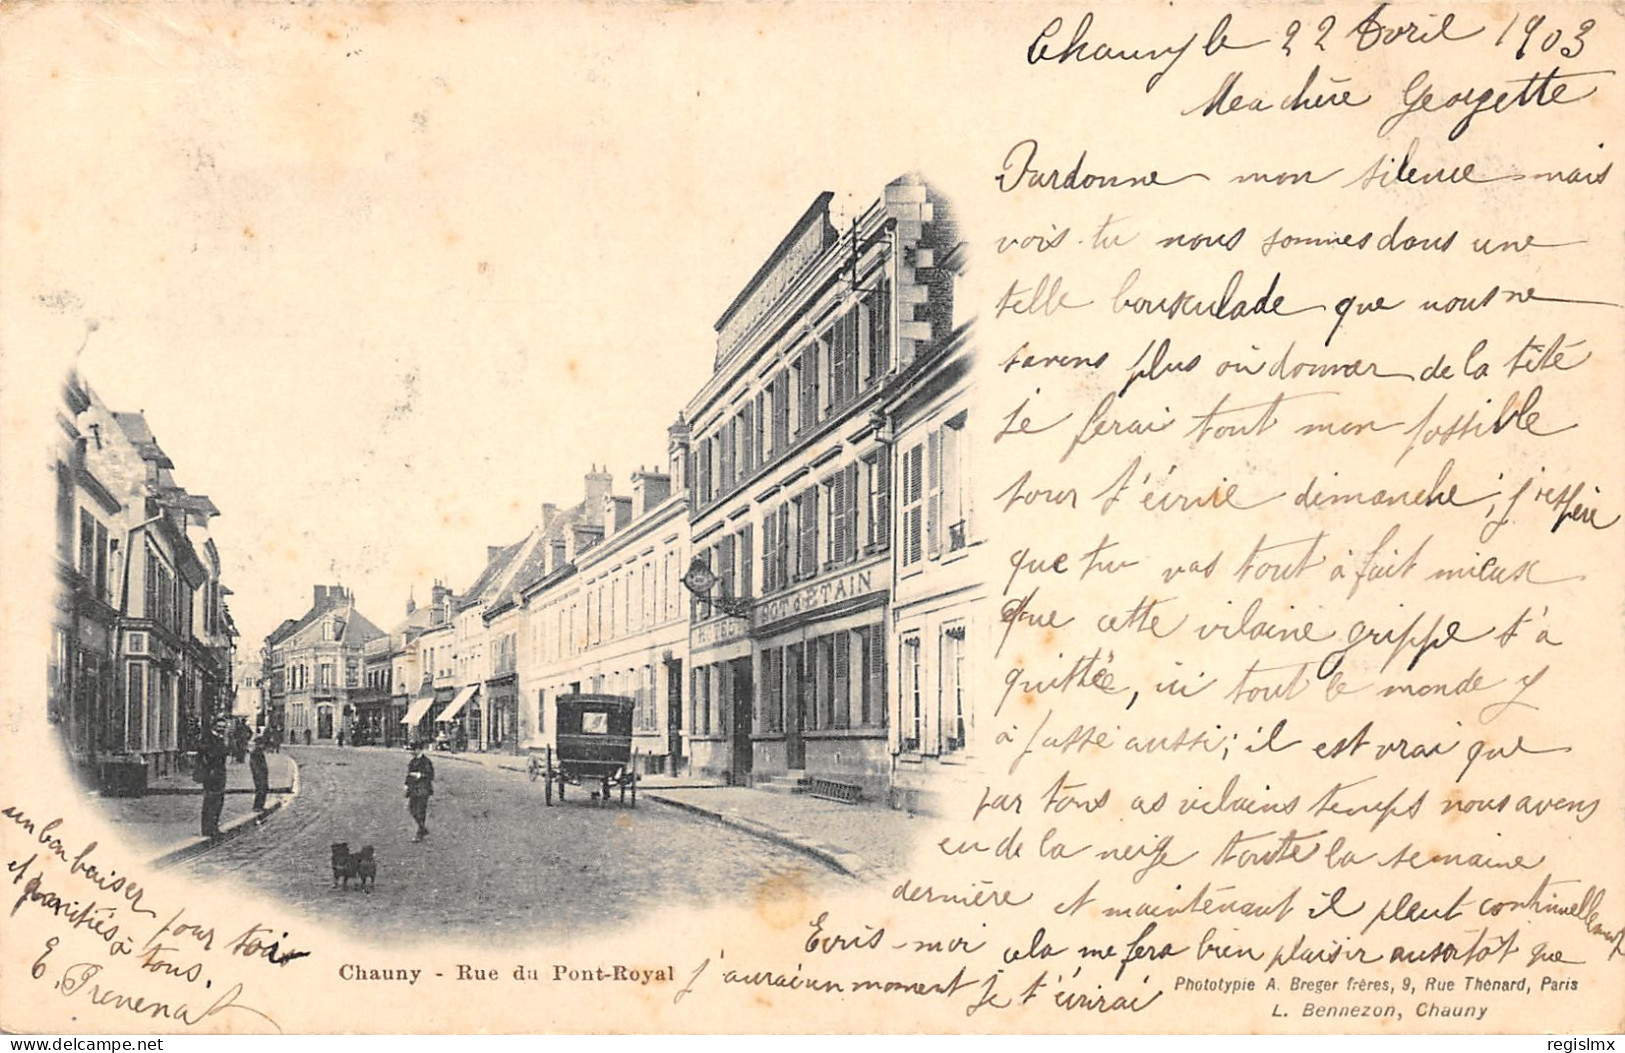 Chauny le 22 Avril 1903
Ma chère Georgette
Pardonne mon silence mais
vois-tu nous sommes dans une
telle bousculade que nous ne
savons plus où donner de la tête
Je ferai tout mon possible
pour t'écrire dimanche ; j'espère
que tu vas tout à fait mieux
que cette vilaine grippe t'a
quittée, ici tout le monde y
à passé aussi ; il est vrai que
par tous ces vilains temps nous avons
eu de la neige toute la semaine
dernière et maintenant il pleut continuellement
Ecris-moi cela me fera bien plaisir aussitôt que
j'aurai un moment je t'écrirai
un bon baiser pour tois
et amitiés à tous.
E. Prevenat
HOTEL POT d'ETAIN
Chauny - Rue du Pont-Royal
Phototypie A. Breger frères, 9, Rue Thénard, Paris
L. Bennezon, Chauny
regislmx